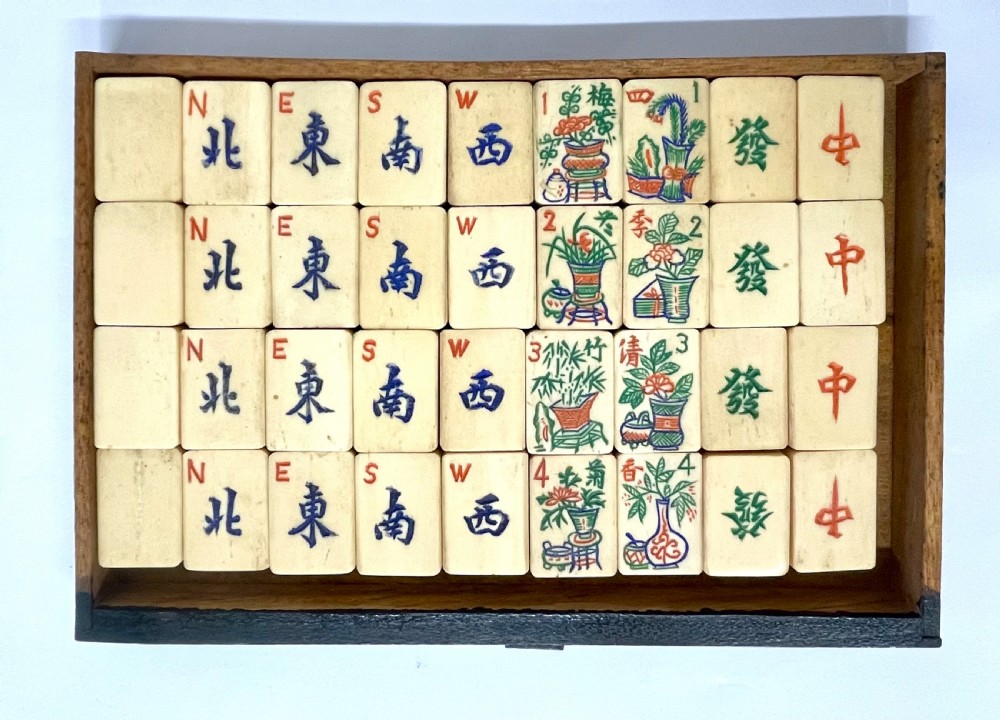 N 北 E 東 S 南 W 西 1 梅 四 1 發 中
N 北 E 東 S 南 W 西 2 季 2 發 中
N 北 E 東 S 南 W 西 3 竹 清 3 發 中
N 北 E 東 S 南 W 西 4 菊 香 4 發 中